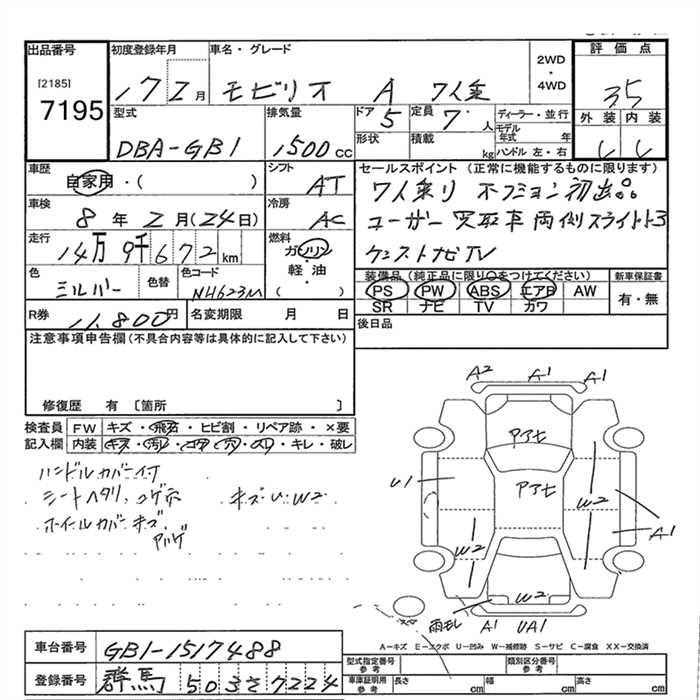 出品番号 初度登録年月 車名・グレード 2WD・4WD 評価点
[2185]
7195 17年 2月 モビリオ A 7人乗 3.5
型式 排気量 ドア 5 定員 7人 ディーラー・並行 外装 内装
モデル年式 年
DBA-GB1 1500cc 形状 積載 kg ハンドル 左・右 C C
車歴 シフト セールスポイント(正常に機能するものに限ります)
自家用・( ) AT 7人乗り 初出品
車検 冷房
8年 2月(24日) AC ユーザー買取車 両側スライド
走行 燃料
14万9千672km ガソリン・軽油 ( ) ナビTV
色 色替 色コード 装備品(純正品に限り○をつけてください) 新車保証書
シルバー NH623M PS PW ABS エアB AW 有・無
SR ナビ TV カワ
R券 11,800円 名変期限 月 日 後日品
注意事項申告欄(不具合内容等は具体的に記入して下さい)
修復歴 有 〔箇所 〕
検査員 FW キズ・飛石・ヒビ割・リペア跡・×要
記入欄 内装 キズ・汚レ・コゲ・穴・ソリ・キレ・破レ
ハンドルカバー付
シートヘタリ、コゲ穴 キズ・U・W2
ホイールカバーキズ
ハゲ
A2 A1 A1
アアセ
アアセ
U1 W2 A1
W2
W2
雨モレ A1 UA1
A-キズ E-エクボ U-凹み W-補修跡 S-サビ C-腐食 XX-交換済
車台番号 GB1-1517488
登録番号 群馬 503さ7224
型式指定番号 参考 類別区分番号 参考
車庫証明用 参考 長さ cm 幅 cm 高さ cm